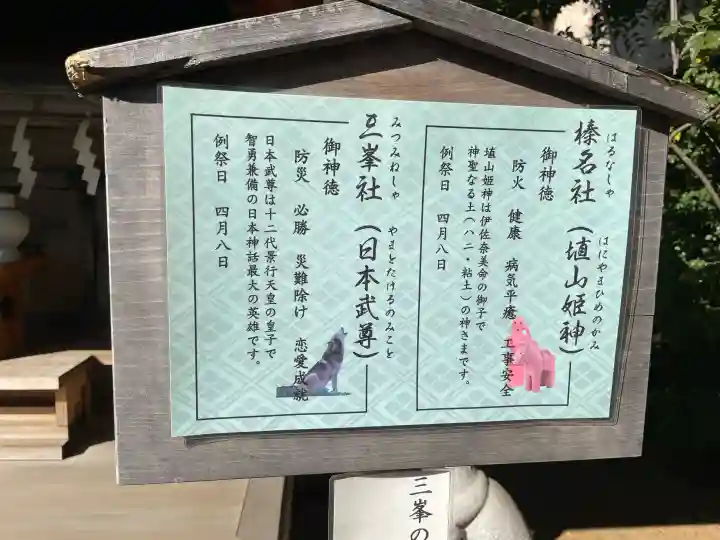 はるなしゃ
榛名社
はにやまひめのかみ
（埴山姫神）
御神徳
防火 健康 病気平癒 工事安全
埴山姫神は伊佐奈美命の御子で
神聖なる土（ハニ・粘土）の神さまです。
例祭日 四月八日
みつみねしゃ
三峯社
やまとたけるのみこと
（日本武尊）
御神徳
防災 必勝 災難除け 恋愛成就
日本武尊は十二代景行天皇の皇子で
智勇兼備の日本神話最大の英雄です。
例祭日 四月八日
三峯の